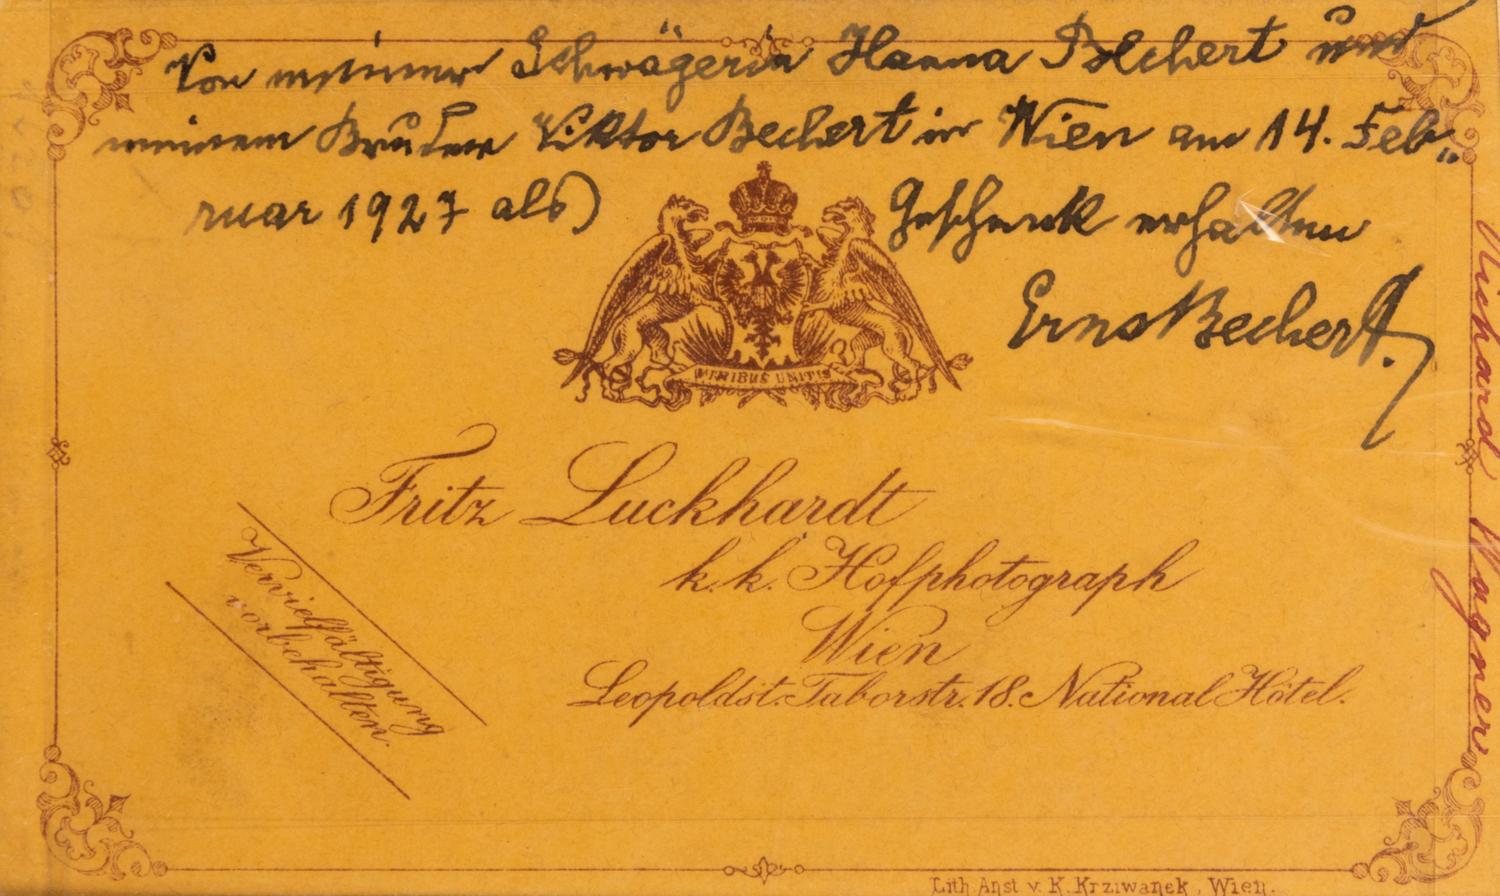 Von meiner Schwägerin Hanna Bechert und
meinem Bruder Viktor Bechert in Wien am 14. Feb„
ruar 1927 als) Geschenk erhalten
Ernst Bechert.
VIRIBUS UNITIS
Fritz Luckhardt
k.k. Hofphotograph
Wien
Leopoldst. Taborstr. 18. National Hôtel.
Vervielfältigung
vorbehalten.
Richard Wagner
Lith. Anst. v. K. Krziwanek, Wien.